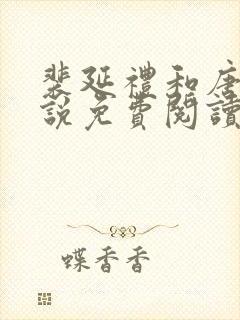 裴延禮和唐
說免費閱讀
蝶香香